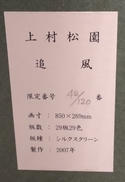 上村松園
追風
限定番号 48/120 番
画寸：850×289mm
版数：29版29色
版種：シルクスクリーン
製作：2007年